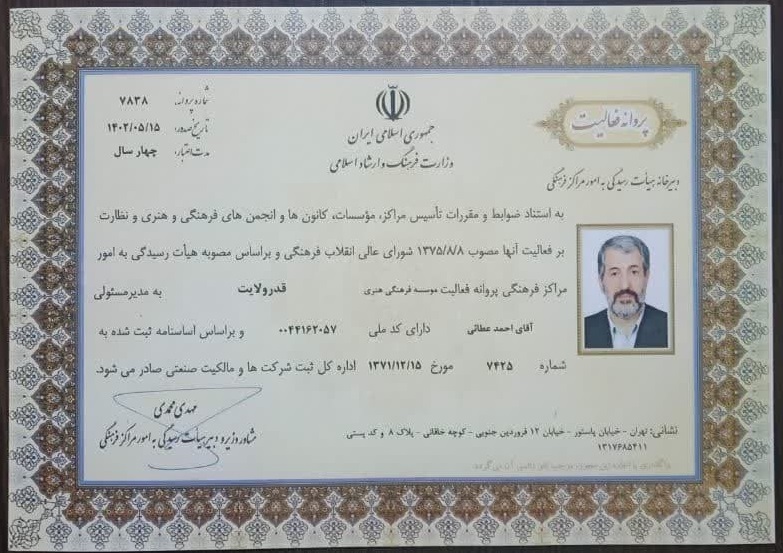 پروانه فعالیت
دبیرخانه هیأت رسیدگی به امور مراکز فرهنگی
جمهوری اسلامی ایران
وزارت فرهنگ و ارشاد اسلامی
شماره پروانه: ۷۸۳۸
تاریخ صدور: ۱۴۰۲/۰۵/۱۵
مدت اعتبار: چهار سال
به استناد ضوابط و مقررات تأسیس مراکز، مؤسسات، کانون ها و انجمن های فرهنگی و هنری و نظارت
بر فعالیت آنها مصوب ۱۳۷۵/۸/۸ شورای عالی انقلاب فرهنگی و براساس مصوبه هیأت رسیدگی به امور
مراکز فرهنگی پروانه فعالیت موسسه فرهنگی هنری قدرولایت به مدیرمسئولی
آقای احمد عطائی دارای کد ملی ۰۰۴۴۱۶۲۰۵۷ و براساس اساسنامه ثبت شده به
شماره ۷۴۲۵ مورخ ۱۳۷۱/۱۲/۱۵ اداره کل ثبت شرکت ها و مالکیت صنعتی صادر می شود.
مهدی محمدی
مشاور وزیر و دبیر هیأت رسیدگی به امور مراکز فرهنگی
نشانی: تهران - خیابان پاستور - خیابان ۱۲ فروردین جنوبی - کوچه خاقانی - پلاک ۸ و کد پستی
۱۳۱۷۶۸۵۴۱۱